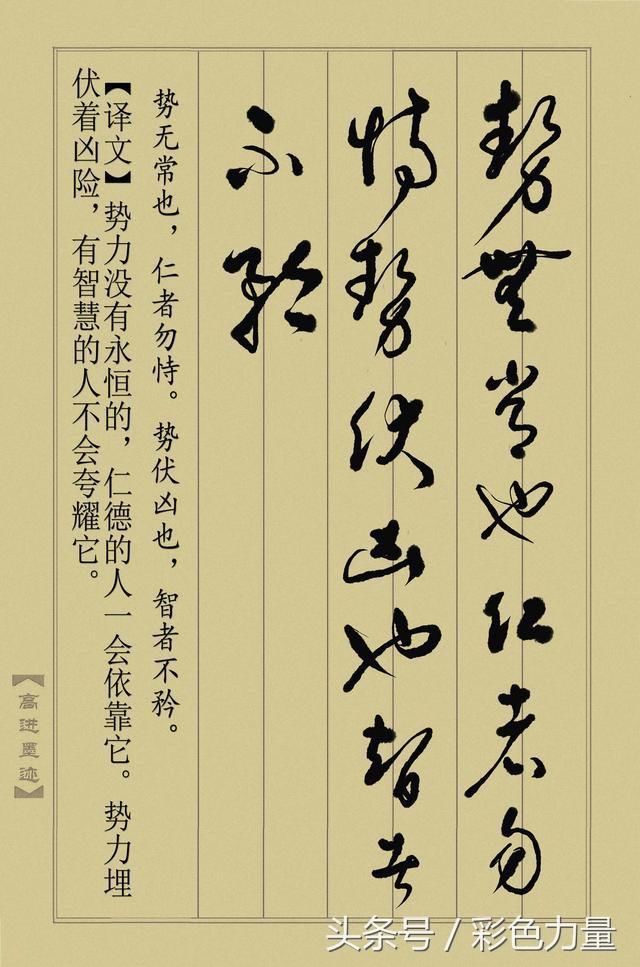 勢無常也仁者勿
恃勢伏凶也智者
不矜
势无常也，仁者勿恃。势伏凶也，智者不矜。
【译文】势力没有永恒的，仁德的人一会依靠它。势力埋
伏着凶险，有智慧的人不会夸耀它。
【高进墨迹】
头条号 / 彩色力量